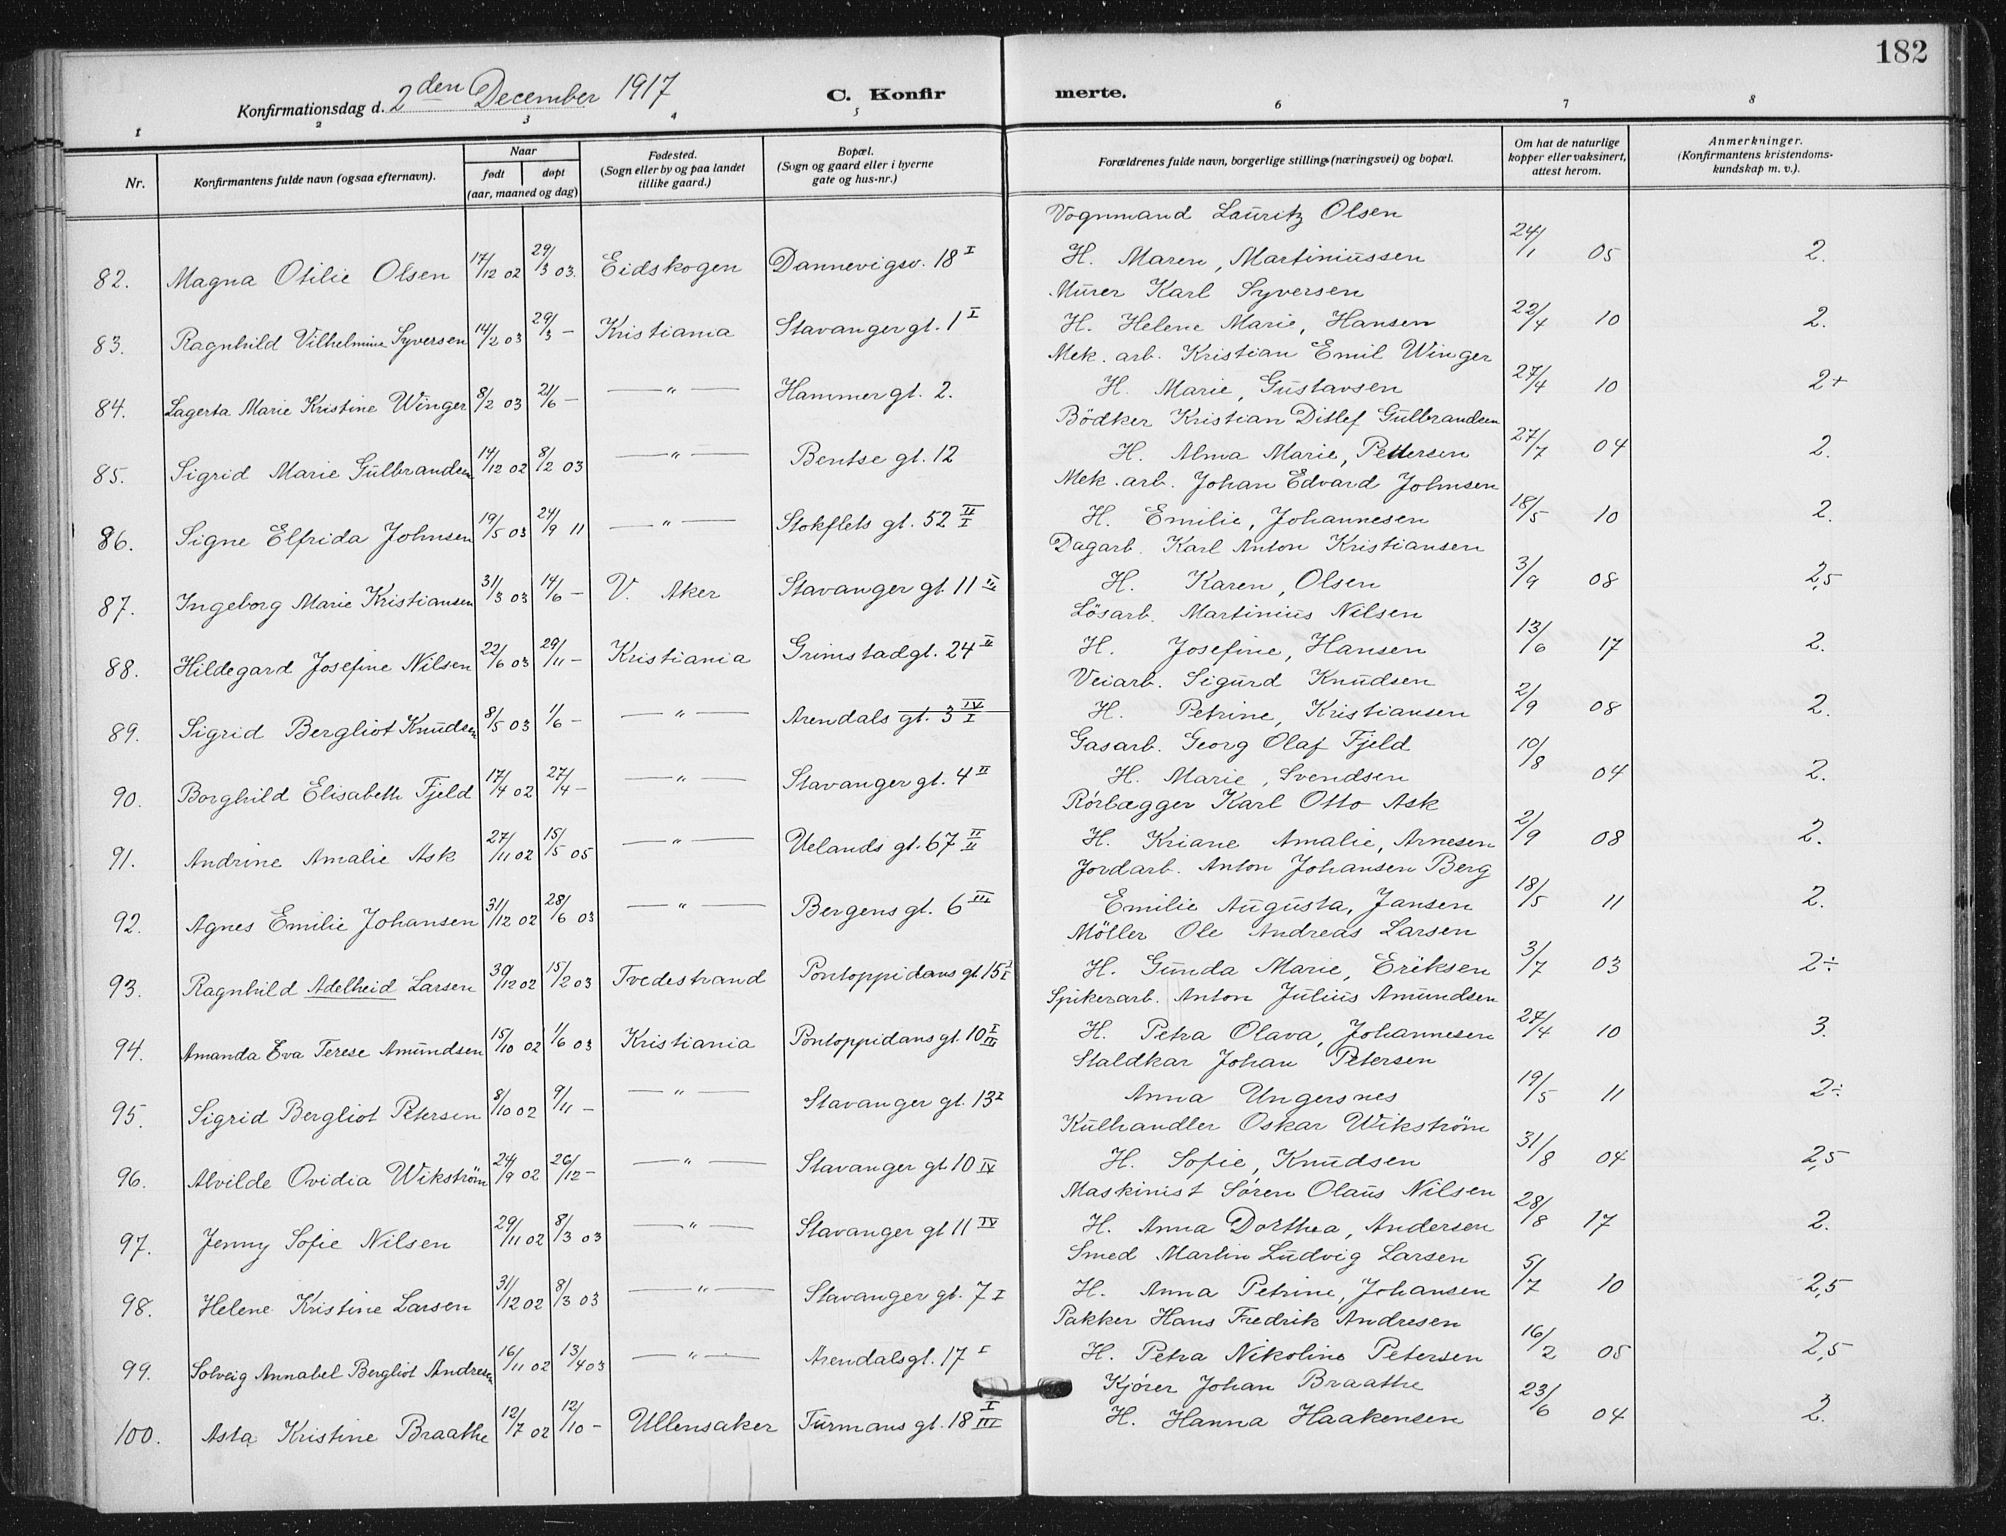 182
Konfirmationsdag d. 2den December 1917 C. Konfirmerte.
1 2 3 4 5 6 7 8
Nr. Konfirmantens fulde navn (ogsaa efternavn). Naar født døpt (aar, maaned og dag) Fødested. (Sogn eller by og paa landet tillike gaard.) Bopæl. (Sogn og gaard eller i byerne gate og hus-nr.) Forældrenes fulde navn, borgerlige stilling (næringsvei) og bopæl. Om hat de naturlige kopper eller vaksinert, attest herom. Anmerkninger. (Konfirmantens kristendoms-kundskap m. v.).
Vognmand Lauritz Olsen
82. Magna Otilie Olsen 17/12 02 29/3 03. Eidskogen Dannevigsv. 18 I H. Maren, Martiniussen 24/1 05 2.
Murer Karl Syversen
83. Ragnhild Vilhelmine Syversen 14/2 03 29/3 — Kristiania Stavanger gt. 1 I H. Helene Marie, Hansen 22/4 10 2.
Mek. arb. Kristian Emil Winger
84. Lagerta Marie Kristine Winger 8/2 03 21/6 — — " — Hammer gt. 2. H. Marie, Gustavsen 27/4 10 2+
Bödker Kristian Ditlef Gulbrandsen
85. Sigrid Marie Gulbrandsen 14/12 02 8/2 03 — " — Bentse gt. 12 H. Alma Marie, Pettersen 27/7 04 2.
Mek. arb. Johan Edvard Johnsen
86. Signe Elfrida Johnsen 19/5 03 24/9 11 — " — Stokflets gt. 52 II/I H. Emilie, Johannesen 18/5 10 2.
Dagarb. Karl Anton Kristiansen
87. Ingeborg Marie Kristiansen 31/3 03 14/6 — V. Aker Stavanger gt 11 H. Karen, Olsen 3/9 08 2,5
Lösarb. Martinius Nilsen
88. Hildegard Josefine Nilsen 22/6 03 29/11 — Kristiania Grimstadgt. 24 H. Josefine, Hansen 13/6 17 2.
Veiarb. Sigurd Knudsen
89. Sigrid Bergliot Knudsen 8/5 03 1/6 — — " — Arendals gt. 3 IV/I H. Petrine, Kristiansen 2/9 08 2.
Gasarb. Georg Olaf Fjeld
90. Borghild Elisabeth Fjeld 17/4 02 27/4 — — " — Stavanger gt. 4 II H. Marie, Svendsen 10/8 04 2.
Rörlægger Karl Otto Ask
91. Andrine Amalie Ask 27/11 02 15/5 05 — " — Uelands gt. 67 II/II H. Kriane Amalie, Arnesen 2/9 08 2.
Jordarb. Anton Johansen Berg
92. Agnes Emilie Johansen 31/12 02 28/6 03 — " — Bergens gt. 6 III Emilie Augusta, Jansen 18/5 11 2.
Möller Ole Andreas Larsen
93. Ragnhild Adelheid Larsen 30/12 02 15/2 03 Tvedestrand Pontoppidans gt 15 I/I H. Gunda Marie, Eriksen 3/7 03 2÷
Spikerarb. Anton Julius Amundsen
94. Amanda Eva Terese Amundsen 15/10 02 1/6 03 Kristiania Pontoppidans gt. 10 I/III H. Petra Olava, Johannesen 27/4 10 3.
Staldkar Johan Petersen
95. Sigrid Bergliot Petersen 8/10 02 9/11 — — " — Stavanger gt. 13 I Anna Ungersnes 19/5 11 2÷
Kulhandler Oskar Wikström
96. Alvilde Ovidia Wikström 24/9 02 26/12 — — " — Stavanger gt. 10 IV H. Sofie, Knudsen 31/8 04 2,5
Maskinist Søren Olaus Nilsen
97. Jenny Sofie Nilsen 29/11 02 8/3 03 — " — Stavanger gt 11 IV H. Anna Dorthea, Andersen 28/8 17 2.
Smed Martin Ludvig Larsen
98. Helene Kristine Larsen 31/12 02 8/3 03 — " — Stavanger gt. 7 I H. Anna Petrine, Johansen 5/7 10 2,5
Pakker Hans Fredrik Andresen
99. Solveig Annabel Bergliot Andresen 16/11 02 13/4 03 — " — Arendalsgt. 17 I H. Petra Nikoline Petersen 16/2 05 2,5
Kjörer Johan Braathe
100. Asta Kristine Braathe 12/7 02 12/10 — Ullensaker Turmans gt. 18 I/III H. Hanna Haakensen 23/6 04 2.